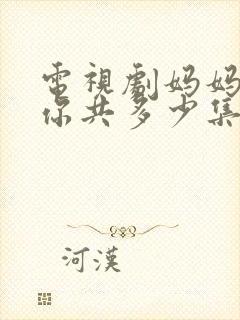 電視劇妈妈
你共多少集
河漢